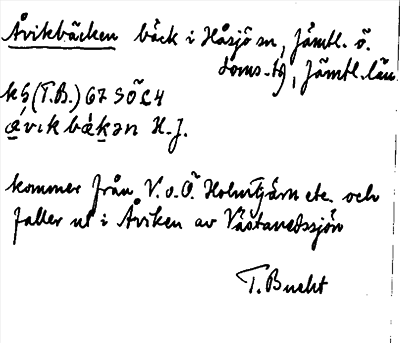 Åvikbäcken bäck i Håsjö sn, Jämtl. ö.
doms-tg, Jämtl. län
k5 (T.B.) 67 SÖ L4
åvikbäkən H.J.
kommer från V. o. Ö. Holmtjärn etc. och
faller ut i Åviken av Västanedssjön
T. Bucht